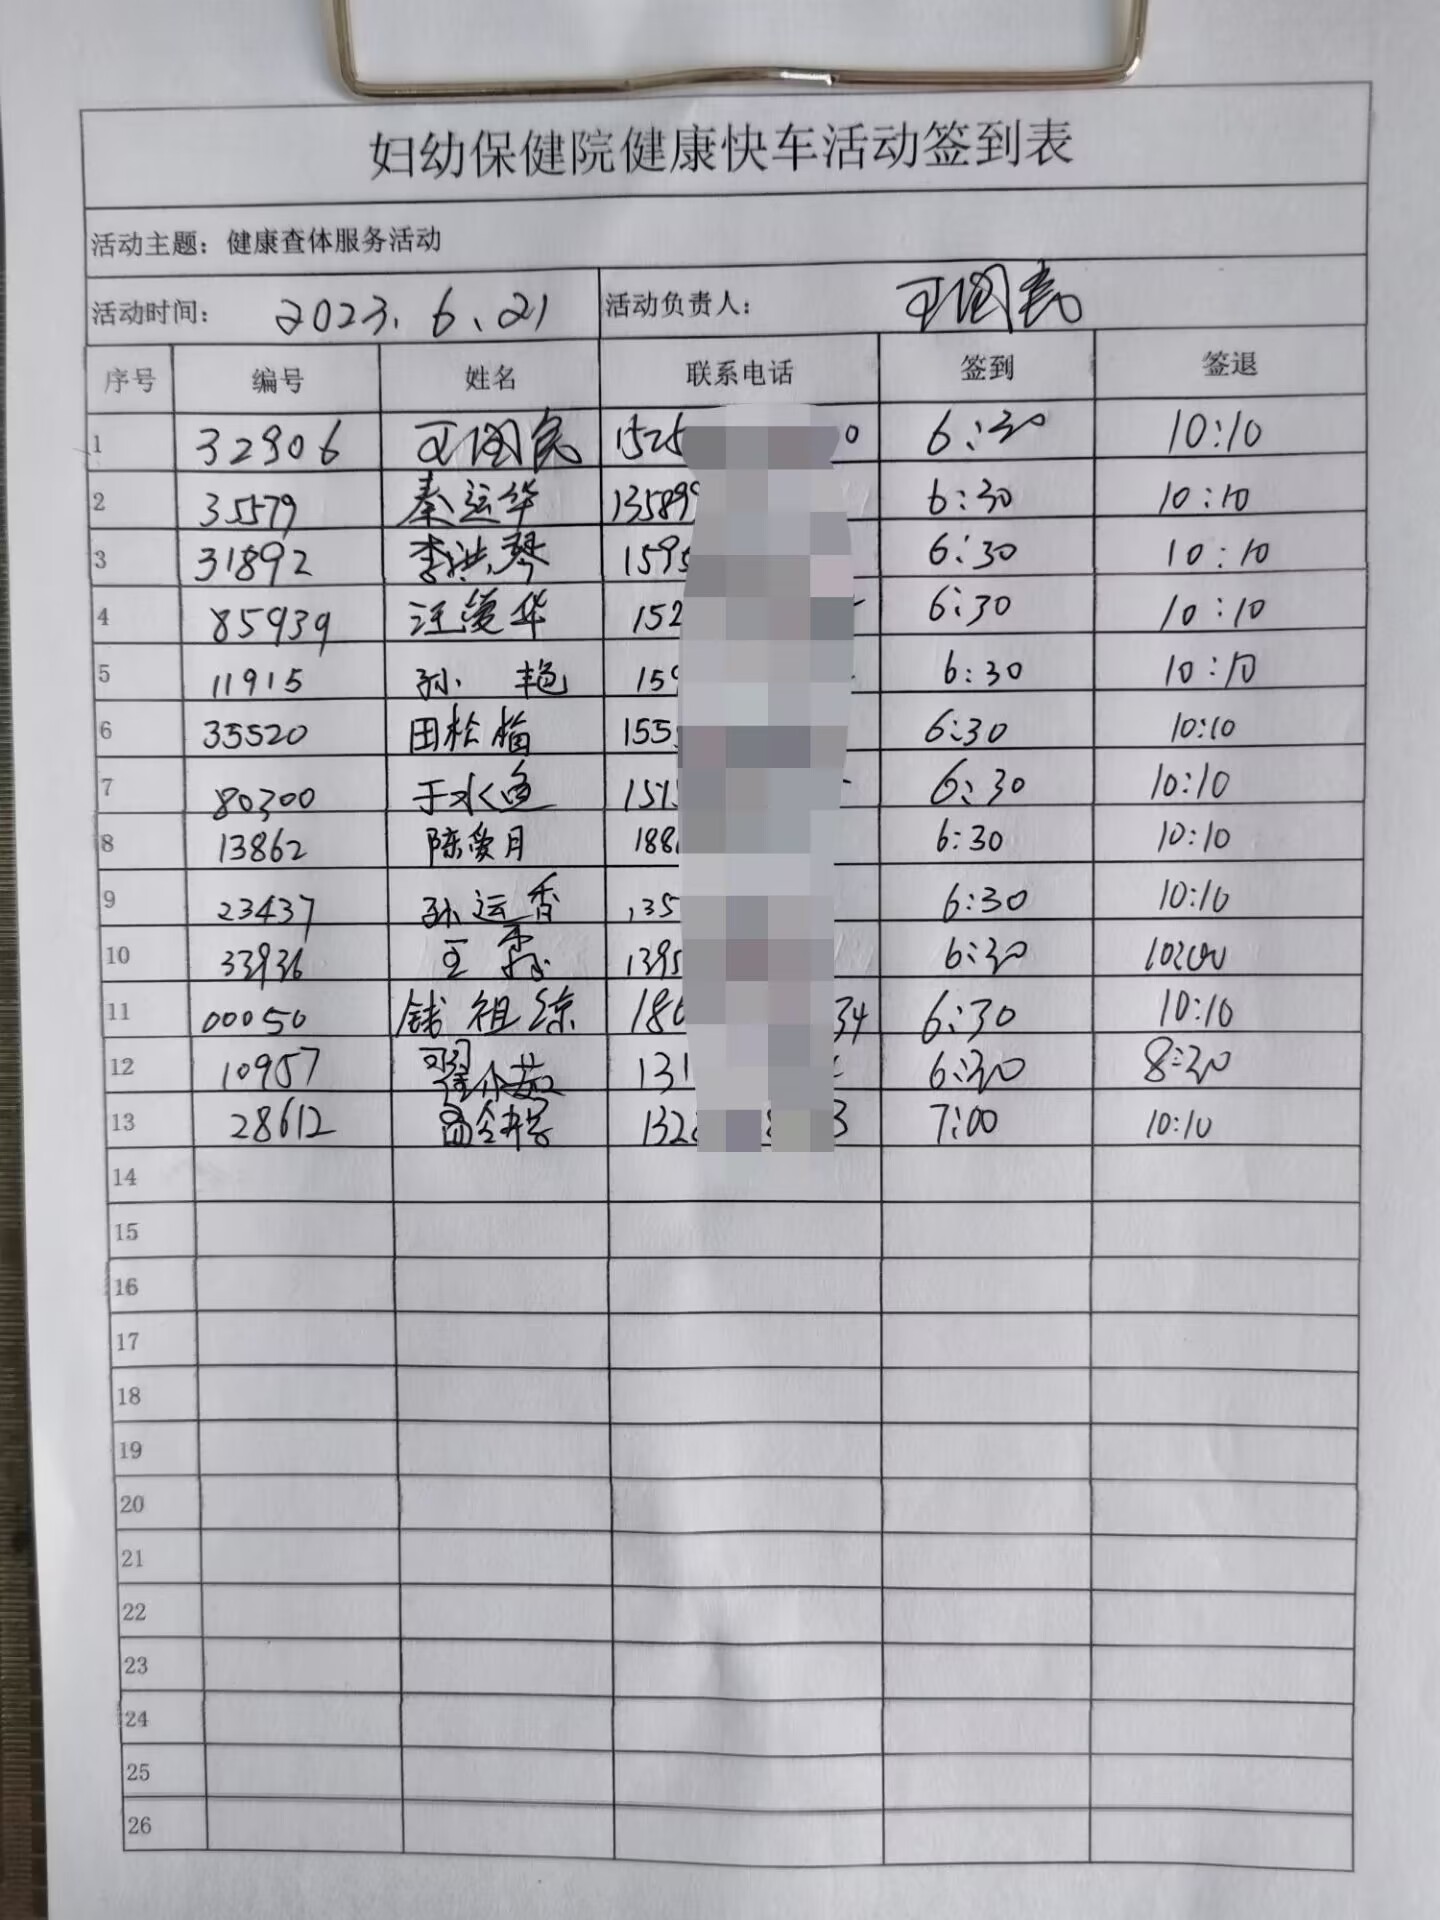 妇幼保健院健康快车活动签到表
活动主题：健康查体服务活动
活动时间： 2023.6.21 活动负责人：
序号 编号 姓名 联系电话 签到 签退
1 32906 1525 0 6:30 10:10
2 35579 秦运华 13589 6:30 10:10
3 31892 李洪琴 1595 6:30 10:10
4 85939 汪爱华 152 6:30 10:10
5 11915 孙艳 159 6:30 10:10
6 35520 田松梅 155 6:30 10:10
7 80300 于水鱼 151 6:30 10:10
8 13862 陈爱月 188 6:30 10:10
9 23437 孙运香 135 6:30 10:10
10 33936 王 1395 6:30
11 00050 钱祖 180 34 6:30 10:10
12 10957 131 6:30 8:30
13 28612 132 3 7:00 10:10
14
15
16
17
18
19
20
21
22
23
24
25
26